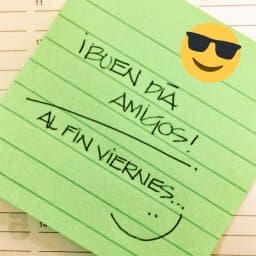 ¡BUEN DÍA
AMIGOS!
AL FIN VIERNES...